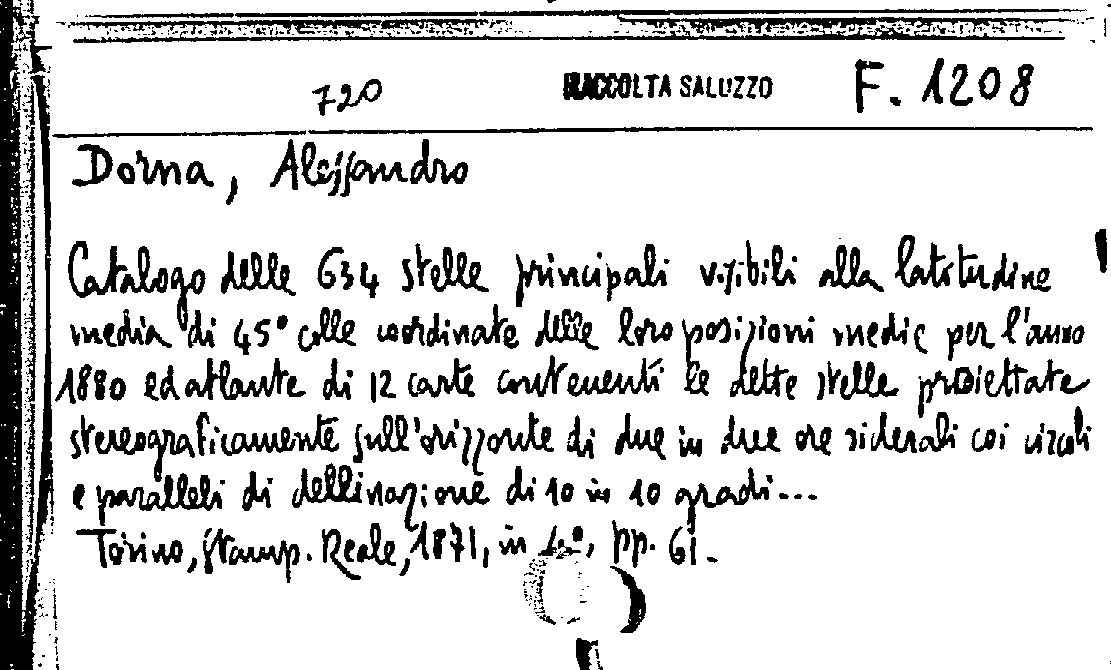 720 RACCOLTA SALUZZO F. 1208
Dorna, Alessandro
Catalogo delle 634 stelle principali visibili alla latitudine
media di 45° colle coordinate delle loro posizioni medie per l'anno
1880 ed atlante di 12 carte contenenti le dette stelle proiettate
stereograficamente sull'orizzonte di due in due ore siderali coi circoli
e paralleli di dellinazione di 10 in 10 gradi...
Torino, Stamp. Reale, 1871, in 4°, pp. 61.